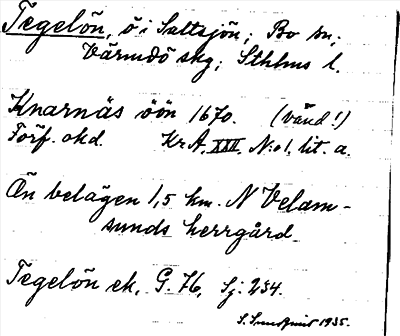 Tegelön, ö i Saltsjön; Bo sn;
Värmdö skg; Sthlms l.
Knarnäs öön 1670. (vänd!)
Förf. okd. KrA, XXII, N:o 1, lit. a.
Ön belägen 1,5 km. N Velam-
sunds herrgård.
Tegelön ek. G. 76, Sj: 254.
S. Sundqvist 1935.